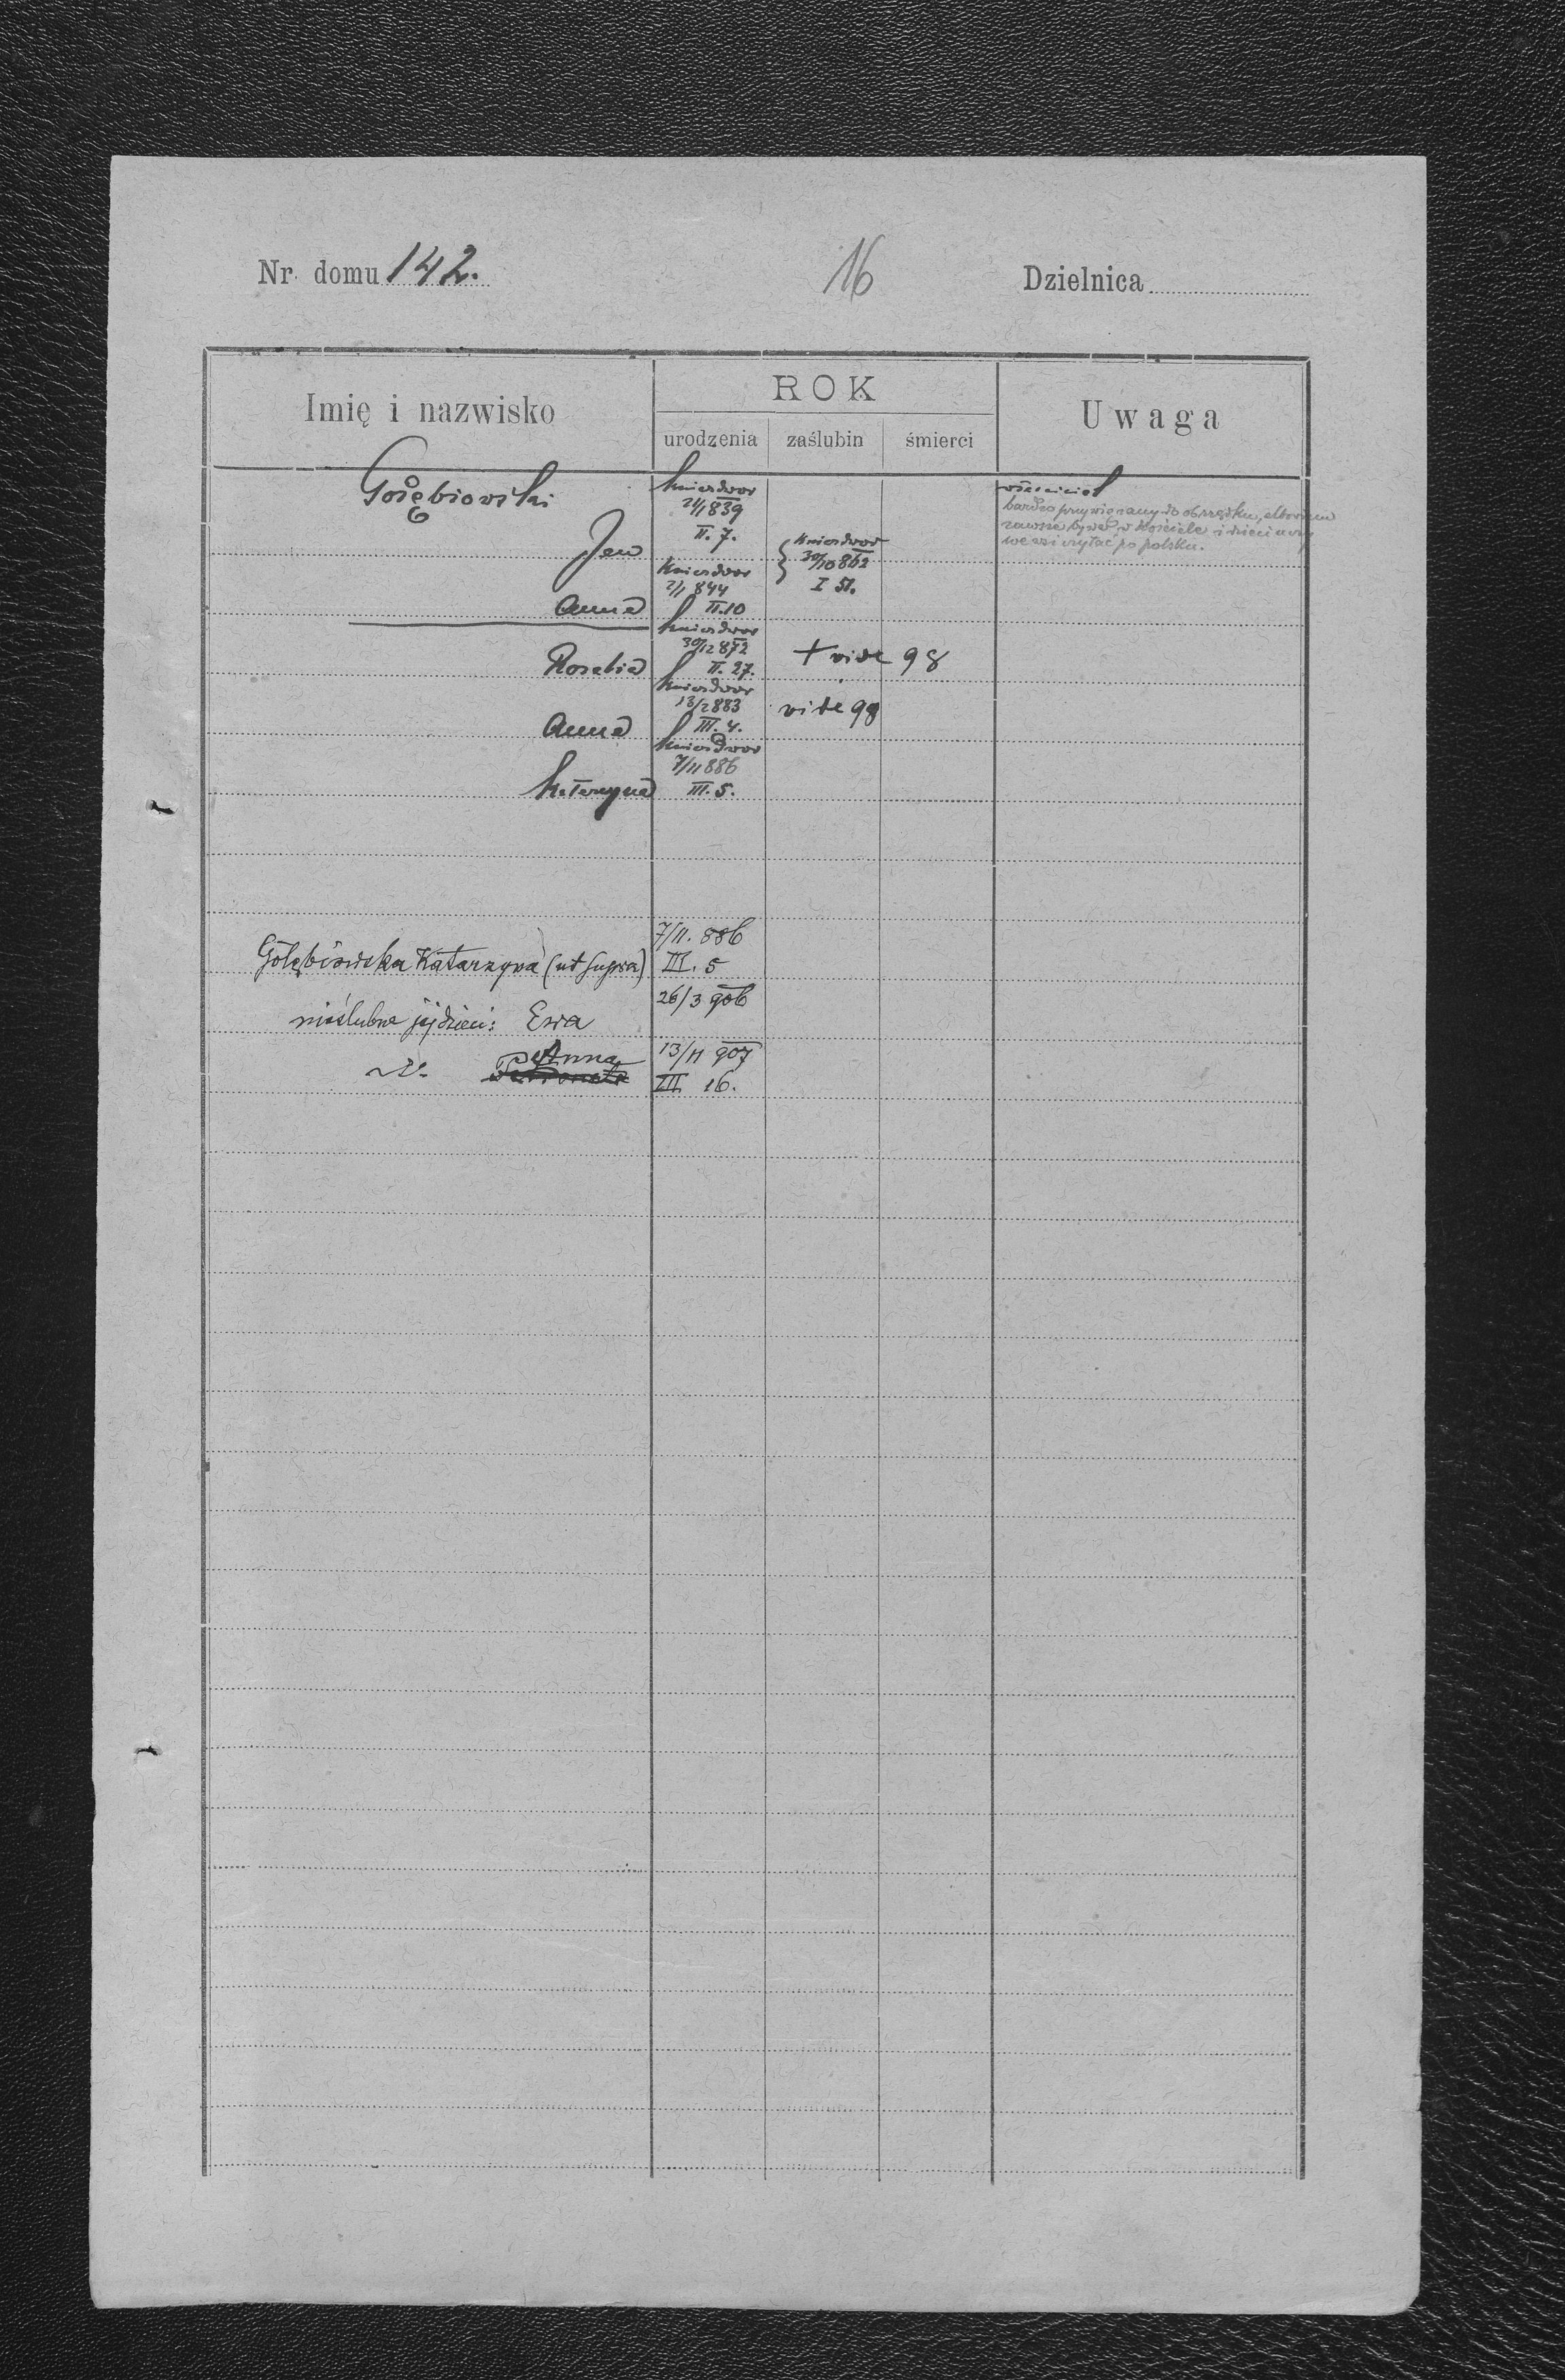 Nr. domu 142.
16
Dzielnica
Imię i nazwisko
ROK
urodzenia
zaślubin
śmierci
Uwaga
Gołębiowski
Kniasdwor
24/1 839
II. 7.
Jan
Kniasdwor
30/10 862
I 51.
właściciel
bardzo przywiązany do obrządku,
zawsze bywał w kościele i dzieci
czytać po polsku.
Kniasdwor
2/1 844
II. 10
Anna
Kniasdwor
30/12 872
II. 27.
Rozalia
+ vide 98
Kniasdwor
13/2 883
III. 4.
Anna
vide 98
Kniasdwor
7/11 886
III. 5.
Katarzyna
7/11. 886
Gołębiowska Katarzyna (ut supra)
III. 5
26/3 906
nieślubne jej dzieci: Ewa
13/11 907
Anna
III 16.